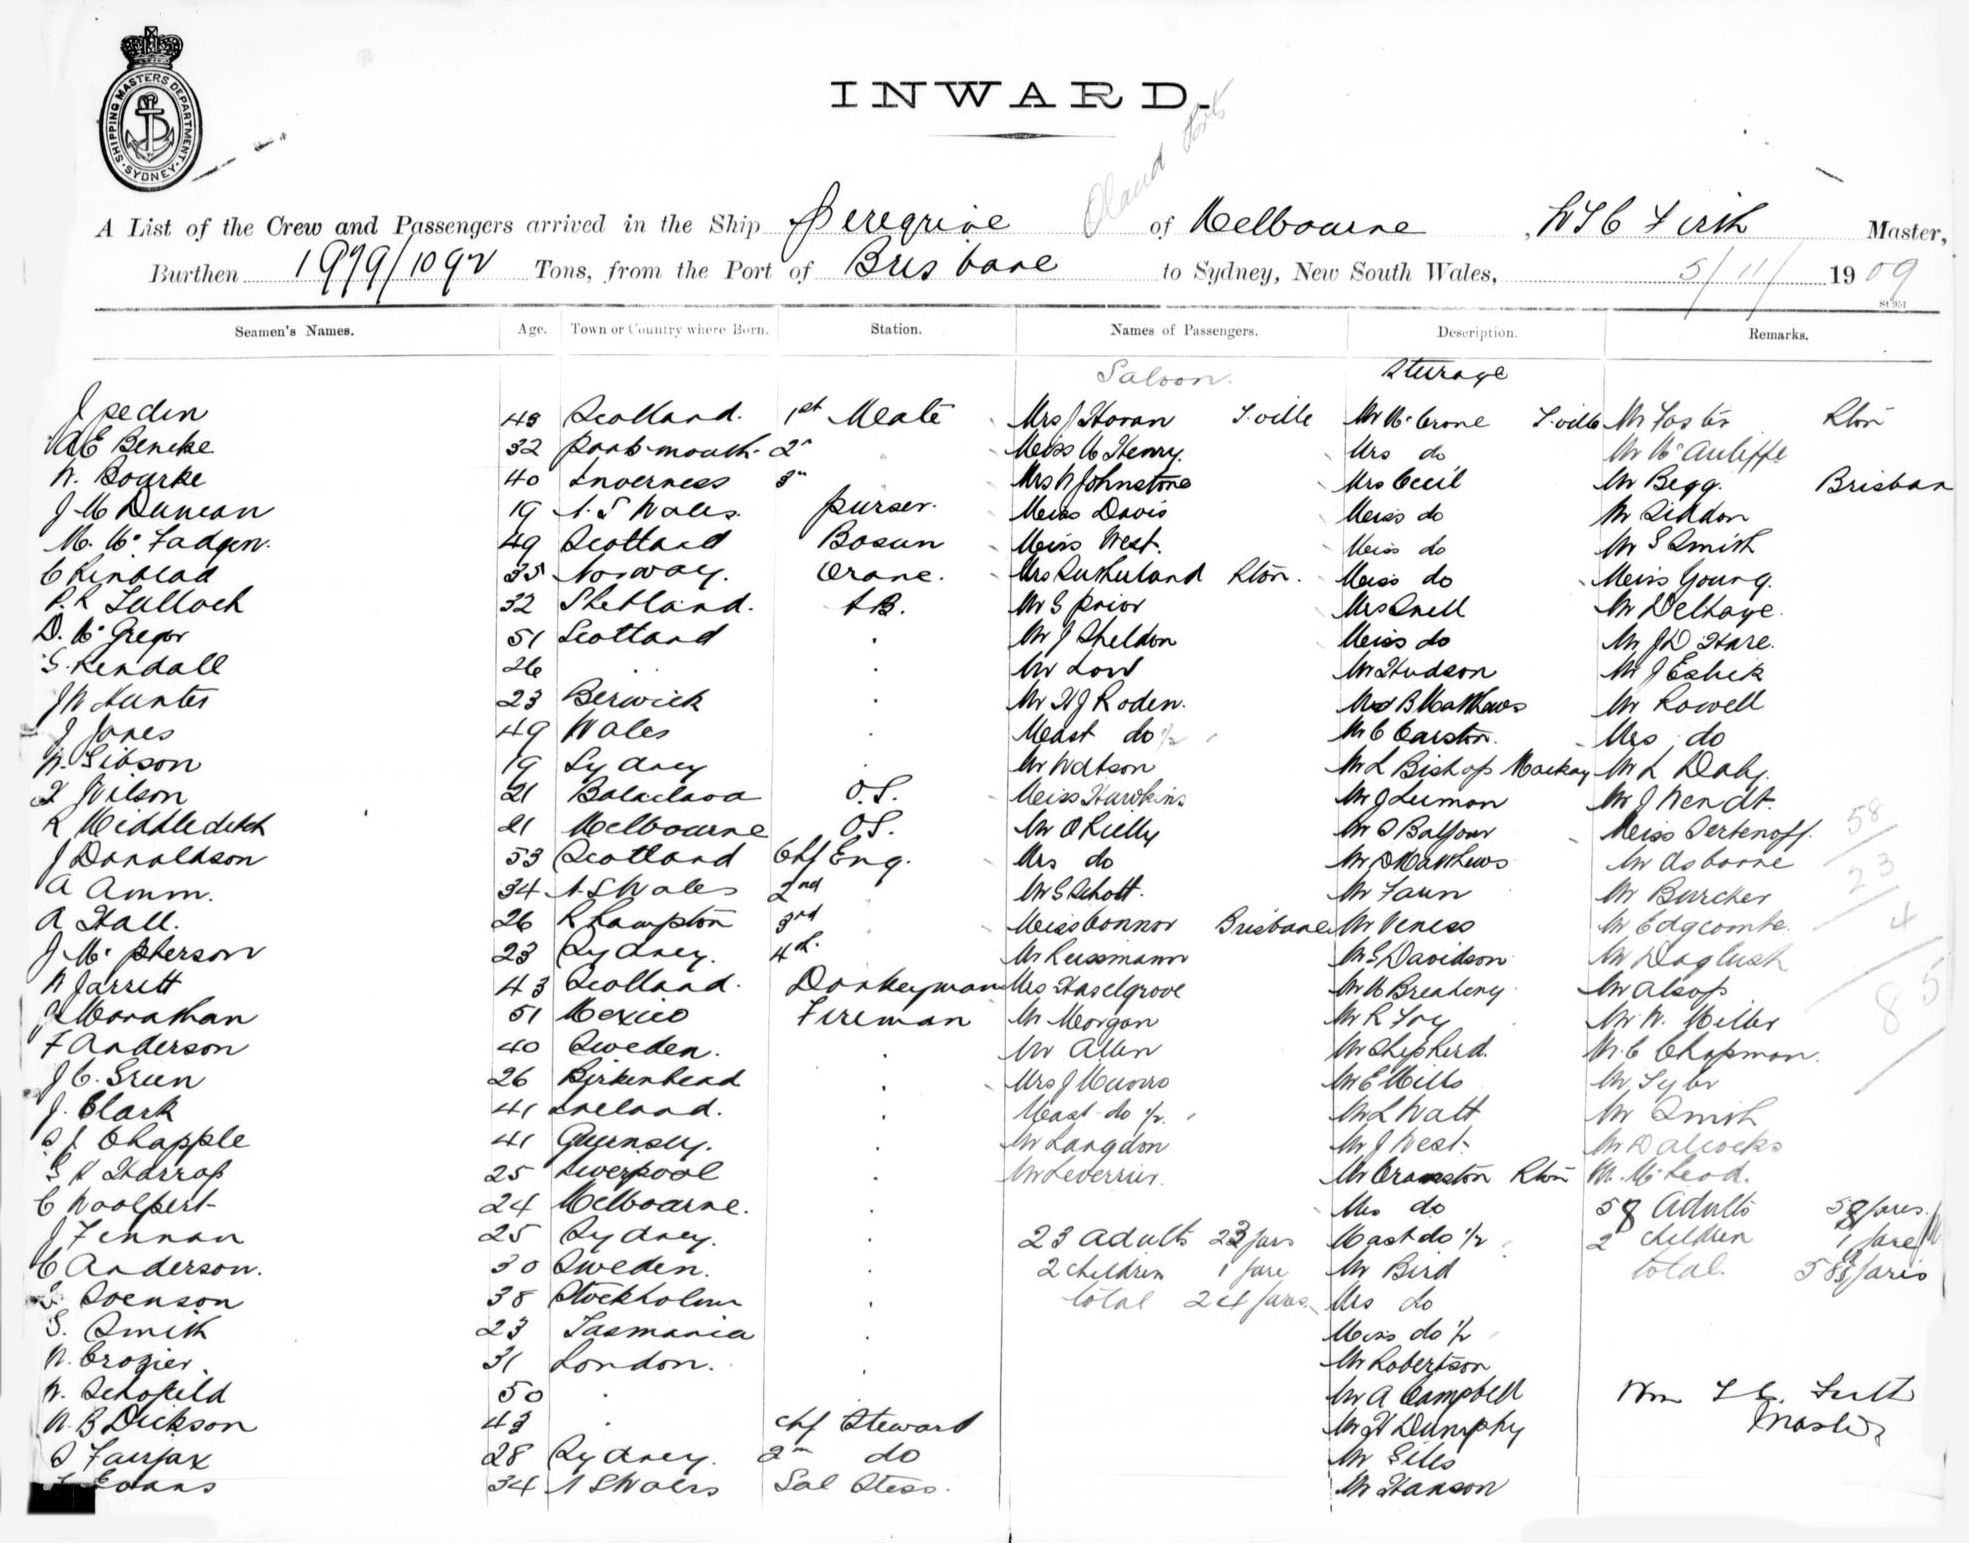 SHIPPING MASTERS DEPARTMENT SYDNEY
INWARD.
A List of the Crew and Passengers arrived in the Ship Peregrine of Melbourne, W T C Firth Master,
Burthen 1979/1092 Tons, from the Port of Brisbane to Sydney, New South Wales, 5/11/ 1909
Seamen's Names. Age. Town or Country where Born. Station. Names of Passengers. Description. Remarks.
Saloon. Sturage
J Peden 43 Scotland. 1st Mate Mrs J Horan T.ville Mr McCrone T.ville Mr Foster Rton
A E Beneke 32 Portsmouth 2" Miss M Henry. Mrs do Mr McAuliffe
W. Bourke 40 Inverness 3" Mrs W Johnstone Mrs Cecil Mr Begg. Brisban
J M Duncan 19 N.S Wales. Purser. Miss Davis Miss do Mr Siddon
M. McFadgen. 49 Scotland Bosun Miss West. Miss do Mr S Smith
C Kinblad 35 Norway. Crane. Mrs Sutherland Rton. Miss do Miss Young.
P. R Tulloch 32 Shetland. A.B. Mr G Prior Mrs Snell Mr Delhaye.
D. McGregor 51 Scotland . Mr J Sheldon Miss do Mr J D Hare.
S. Kendall 26 . . . Mr Low Mr Hudson Mr J Eshik
J W Hunter 23 Berwick . Mr H J Roden. Mrs B Matthews Mr Rowell
J Jones 49 Wales . Mast do 1/2 Mr C Carston. Mrs do
W. Gibson 19 Sydney . Mr Watson Mr L Bishop Mackay Mr L Daly.
Wilson 21 Balaclava O.S. Miss Hawkins Mr J Lemon Mr J Wendt.
R Middleditch 21 Melbourne O.S. Mr O Rielly Mr S Balfour Miss Sertenoff. 58
J Donaldson 53 Scotland Chf Eng. Mrs do Mr D Matthews Mr Osborne
A Amm. 34 N.S Wales 2nd Mr G Schott. Mr Faun Mr Burcher 23
A Hall. 26 R Hampton 3rd Miss Connor Brisbane Mr Veness Mr Edgcombe 4
J McPherson 23 Sydney. 4th. Mr Reissmann Mr G Davidson Mr Daglish
W Jarrett 43 Scotland. Donkeyman Mrs Haselgrove Mr M Breaheny Mr Alsop 85
J Monathan 51 Mexico Fireman Mr Morgan Mr R Foy Mr W. Miller
F Anderson 40 Sweden. . Mr Allen Mr Shepherd. Mr C Chapman.
J C. Green 26 Birkenhead . Mrs J Munro Mr E Mills Mr Tyler
J. Clark 41 Ireland. . Mast do 1/2. Mr L Watt Mr Smith
S J. Chapple 41 Guernsey. . Mr Langdon Mr J West. Mr Dalcocks
G R Harrop 25 Liverpool . Mr Leverrier. Mr Cranston Rton Mr McLeod.
C Woolpert 24 Melbourne. . Mrs do 58 Adults 58 fares.
J Fennan 25 Sydney. . 23 Adults 23 fars Mast do 1/2 2 children 1 fare
C Anderson. 30 Sweden. . 2 children 1 fare Mr Bird total. fares
Svenson 38 Stockholm . total 24 fares. Mrs do
S. Smith 23 Tasmania . Miss do 1/2
W. Crozier. 31 London. . Mr Robertson
W. Schofield 50 . . Mr A Campbell Wm T C. Firth
W. B Dickson 43 . Chf Steward Mr H Dumphy Master
S Fairfax 28 Sydney. 2" do Mr Giles
Evans 34 N S Wales Sal Stess. Mr Hanson